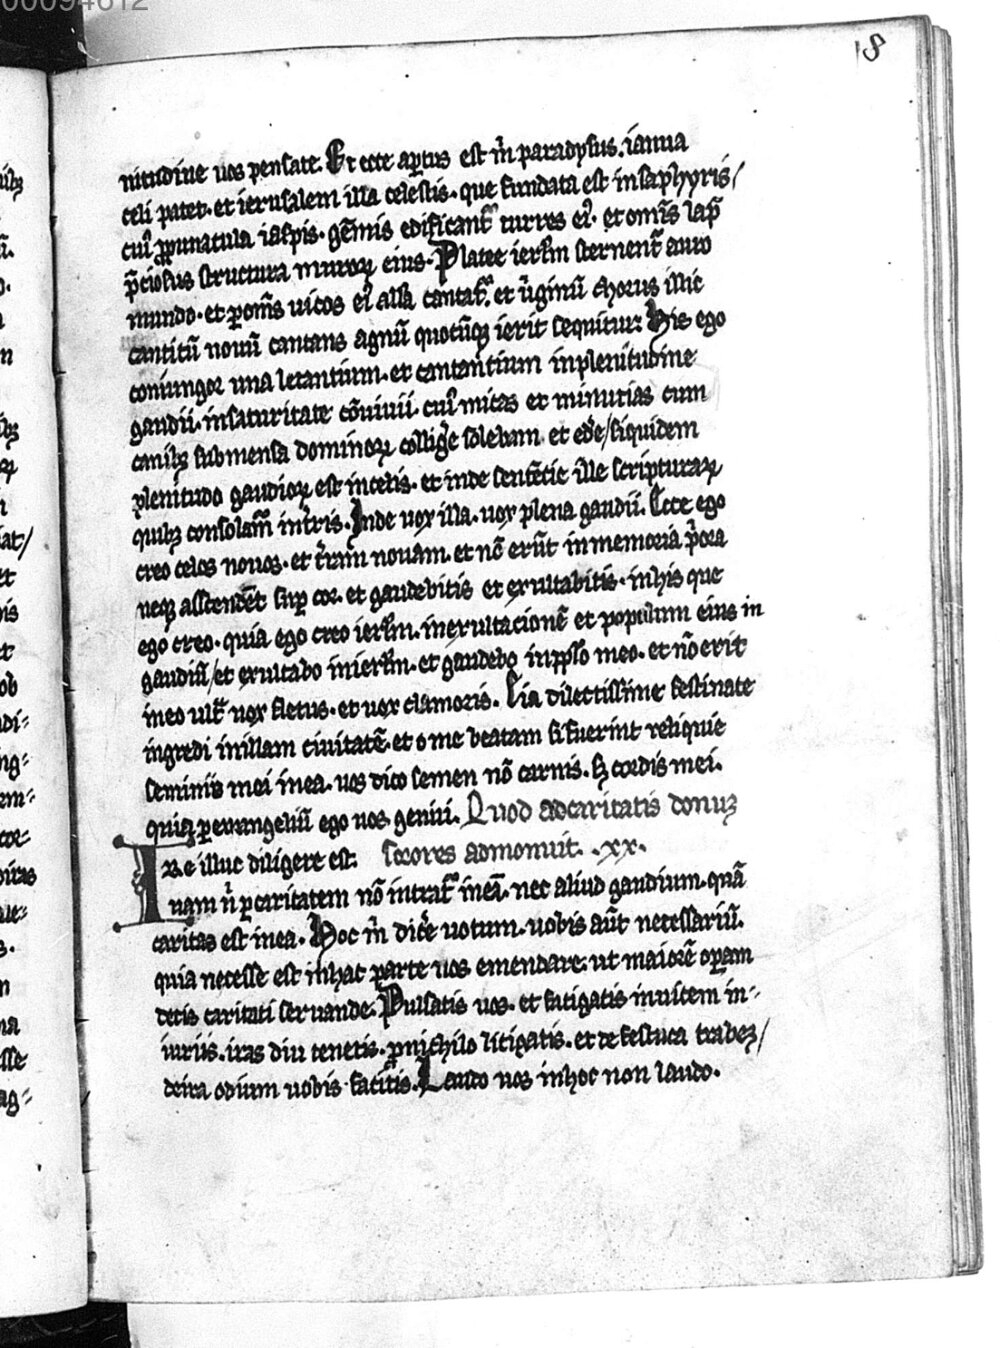 00094612
18
nitudine uos pensate. Et ecce aꝑtus est m̄ paradysus. ianua
celi patet. et ierusalem illa celestis. que fundata est insaphyris/
cuiꝰ ꝓpunacula iaspis. gēmis edificantᷣ turres eiꝰ. et om̄s lap̄
p̄ciosus structura muroꝝ eius. Platee ierlm̄ sternentᷣ auro
mundo. et ꝑom̄s uicos eiꝰ alla cantatᷣ. et uͥginū chorus illic
canticū nouū cantans agnū quocūqꝫ ierit sequitur. His ego
coniungor una letantium. et cantantium inplenitudine
gaudii. insaturitate cōuiuii. cuiꝰ micas et minutias cum
canibꝫ submensa dominoꝝ colligͤe solebam et edͤe/siquidem
plenitudo gaudioꝝ est incelis. et inde sentētie ille scripturaꝝ
quibꝫ consolam̄ int̄ris. Inde uox illa. uox plena gaudii. Ecce ego
creo celos nouos. et t̄ram nouam. et nō erūt inmemoria p̄ora
neqꝫ asscendēt suꝑ cor. et gaudebitis et exultabitis. inhis que
ego creo. quia ego creo ierlm̄. inexultacionē et populum eius in
gaudiū/et exultabo inierlm̄. et gaudebo inpplo meo. et nō erit
ineo ultᷓ uox fletus. et uox clamoris. Eia dilectissime festinate
ingredi inillam ciuitatē. et o me beatam si fuerint reliquie
seminis mei inea. uos dico semen nō carnis. sꝫ cordis mei.
quia ꝑeuuangeliū ego uos genui. Quod adcaritatis donuꝫ
Ire illuc diligere est. Sorores admonuit. .xx.
nam nͥ ꝑcaritatem nō intratᷣ ineā. nec aliud gaudium. quā
caritas est inea. Hoc m̄ dicͤe uotum. uobis aūt necessariū.
quia necesse est inhac parte uos emendare. ut maiorē oꝑam
detis caritati seruande. Pulsatis uos. et fatigatis inuicem in-
iuriis. iras diu tenetis. ꝓnichilo litigatis. et de festuca trabeꝫ/
deira odium uobis facitis. Laudo uos inhoc non laudo.